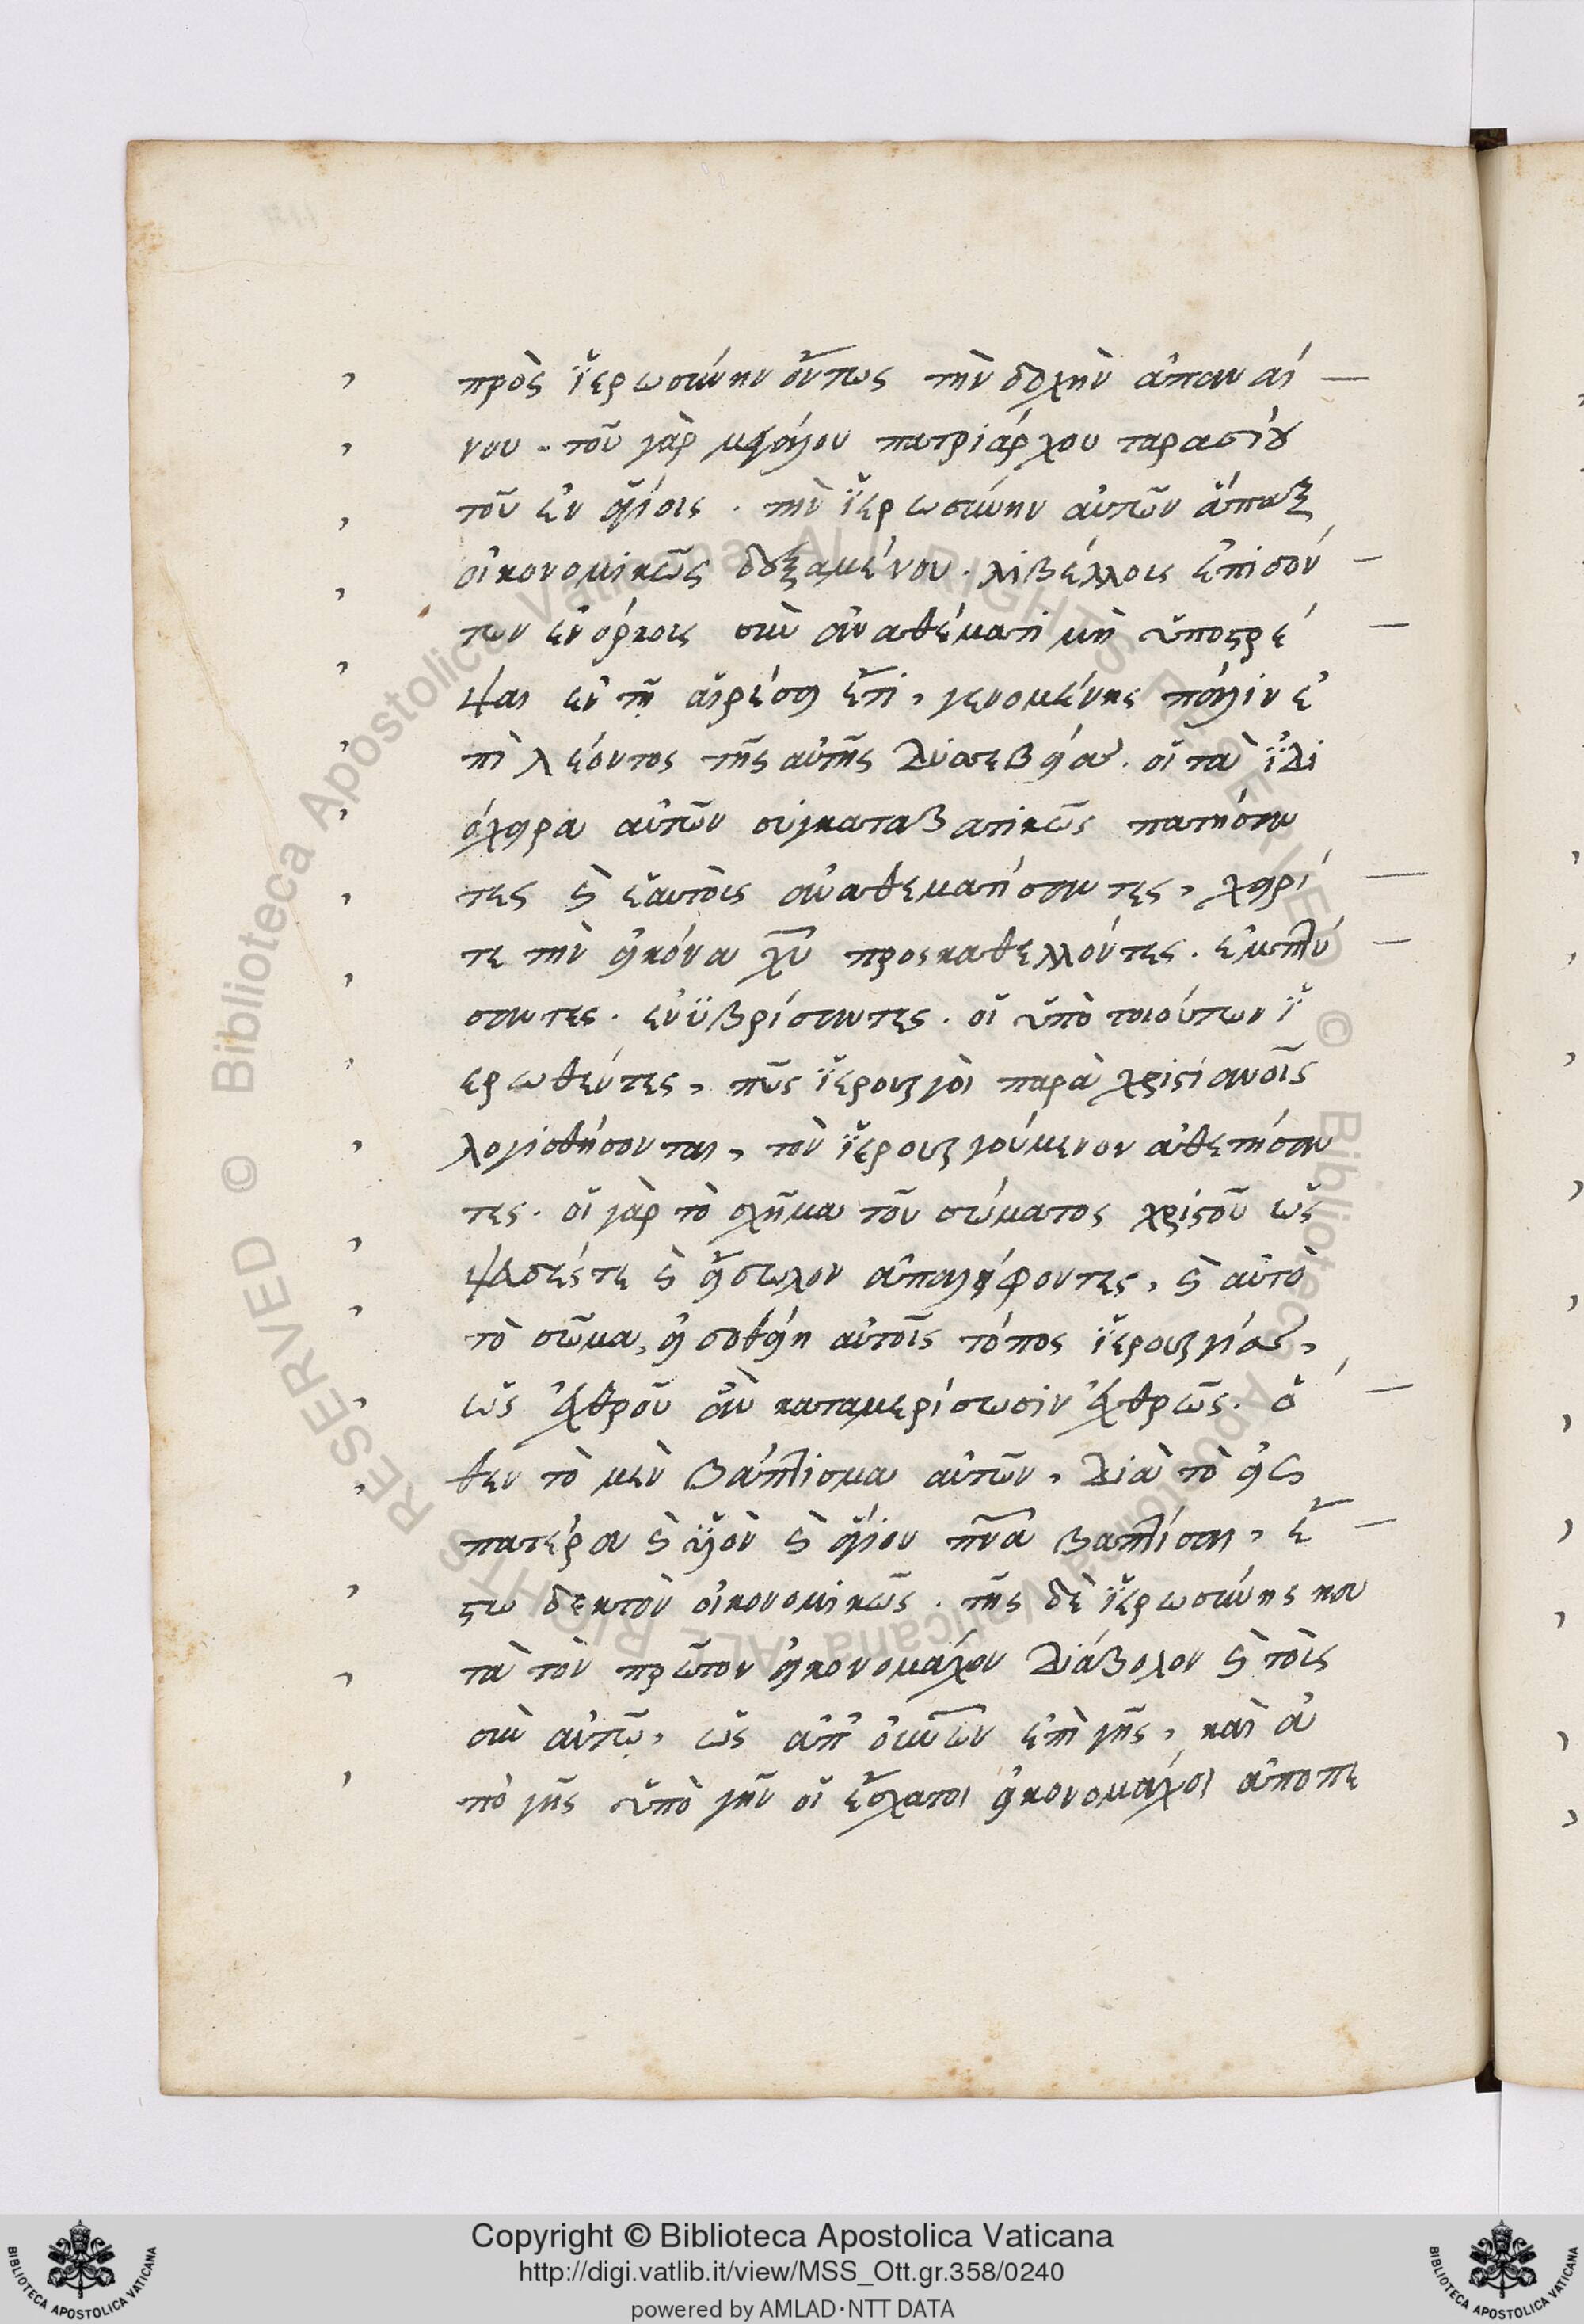 πρὸς ἱερωσύνην ὄντως τὴν δοχὴν ἀπαναί
νου. τοῦ γὰρ μεγάλου πατριάρχου ταρασίου
τοῦ ἐν ἁγίοις. τὴν ἱερωσύνην αὐτῶν ἅπαξ
οἰκονομικῶς δεξαμένου. λιβέλλοις ἐπισόν
των ἐνόρκοις σὺν ἀναθέματι μὴ ὑποστρέ
ψαι ἐν τῇ αἱρέσει ἔτι, γενομένης πάλιν ἐ
πὶ λέοντος τῆς αὐτῆς δυσσεβείας. οἱ τὰ ἰδι
όχειρα αὐτῶν συγκαταβατικῶς πατήσαν
τες καὶ ἑαυτοὺς ἀναθεματίσαντες, χειρί
τε τὴν εἰκόνα χυ προσκαθελλόντες. ἐμπτύ
σαντες. ἐνϋβρίσαντες. οἱ ὑπὸ τοιούτων ἱ
ερωθέντες, πῶς ἱερουργοὶ παρὰ χριστιανοῖς
λογισθήσονται, τὸν ἱερουργούμενον ἀθετήσαν
τες. οἱ γὰρ τὸ σχῆμα τοῦ σώματος χριστοῦ ὡς
ψευδές τε καὶ εἴδωλον ἀπαλείφοντες, καὶ αὐτὸ
τὸ σῶμα, εἰ δοθείη αὐτοῖς τόπος ἱερουργίας,
ὡς ἐχθροῦ ἂν καταμερίσωσιν ἐχθρῶς. ὅ
θεν τὸ μὲν βάπτισμα αὐτῶν, διὰ τὸ εἰς
πατέρα καὶ υἱὸν καὶ ἅγιον πνα βαπτίσαι, ἔ
στω δεκτὸν οἰκονομικῶς. τῆς δὲ ἱερωσύνης κα
τὰ τὸν πρῶτον εἰκονομάχον διάβολον καὶ τοὺς
σὺν αὐτῷ, ὡς ἀπ' οὐνῶν ἐπὶ γῆς, καὶ ἀ
πὸ γῆς ὑπὸ γῆν οἱ ἔσχατοι εἰκονομάχοι ἀποπε
Copyright © Biblioteca Apostolica Vaticana
http://digi.vatlib.it/view/MSS_Ott.gr.358/0240
powered by AMLAD·NTT DATA